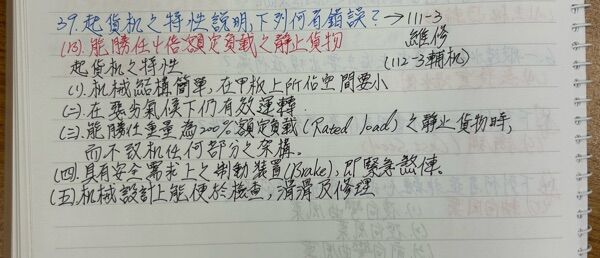 39.起货机之特性說明,下列何有錯誤?→111-3
(B).能勝任4倍額定負載之静止貨物
維修
(112-3輔机)
起貨机之特性
(一).机械結構簡單,在甲板上所佔空間要小
(二).在惡劣氣候下仍有效運轉
(三).能勝任重量為200%額定負載(Rated load)之静止貨物時,
而不致机任何部分之
(四).具有安全需求上之制動裝置(Brake),即緊急煞俥。
(五).机械設計上能便於檢查,滑滑及修理